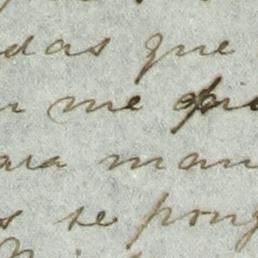 das que
me
ara man
s se pong